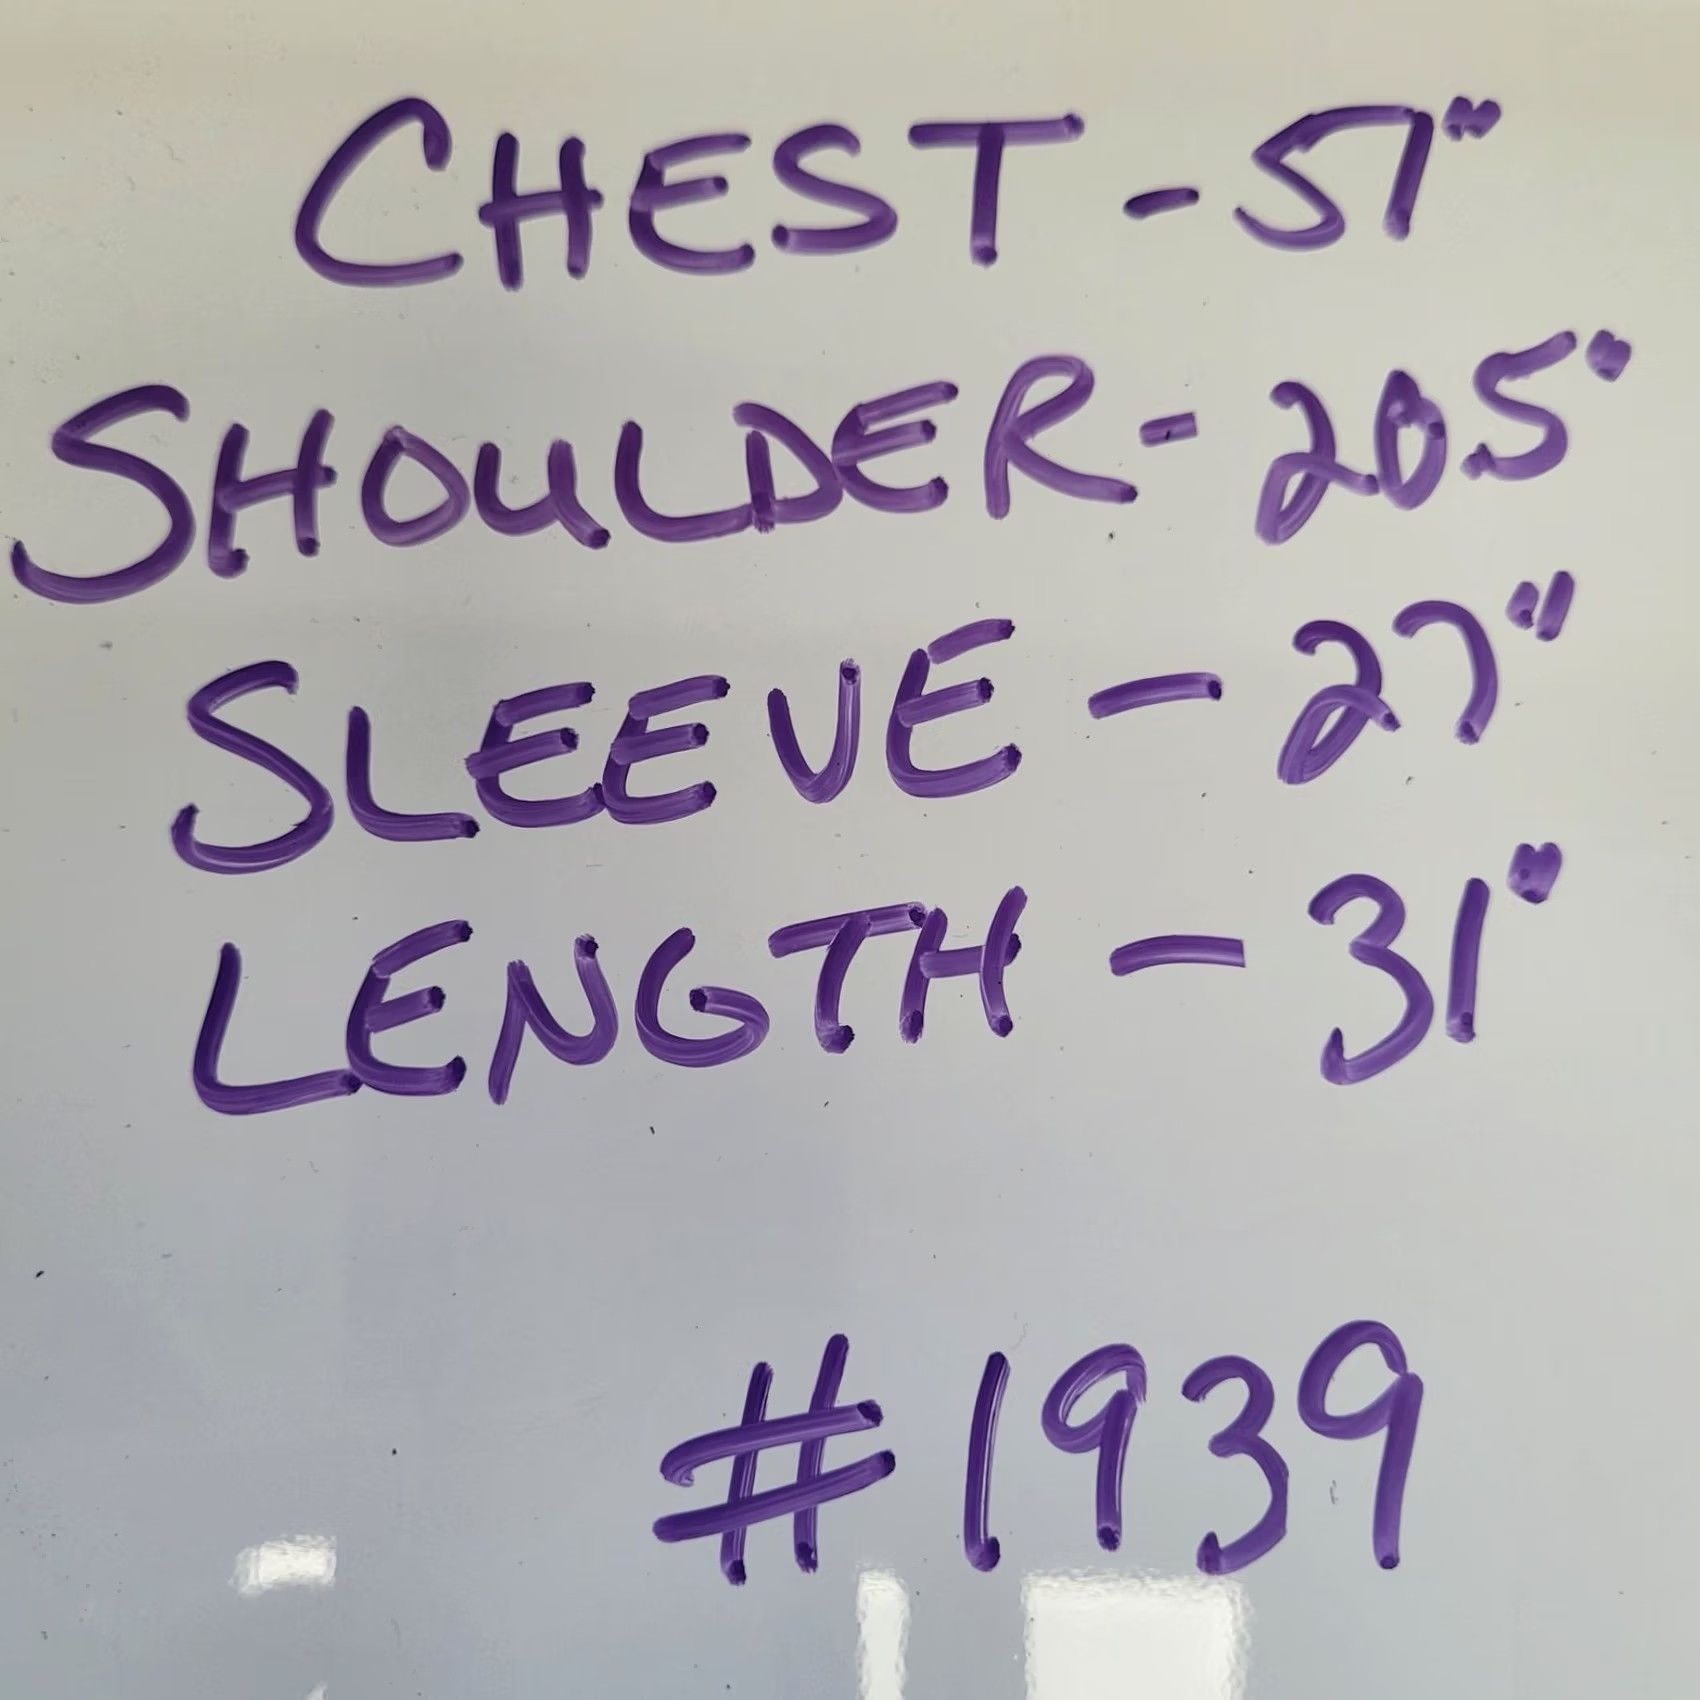 CHEST - 51"
SHOULDER - 20.5"
SLEEVE - 27"
LENGTH - 31"
#1939